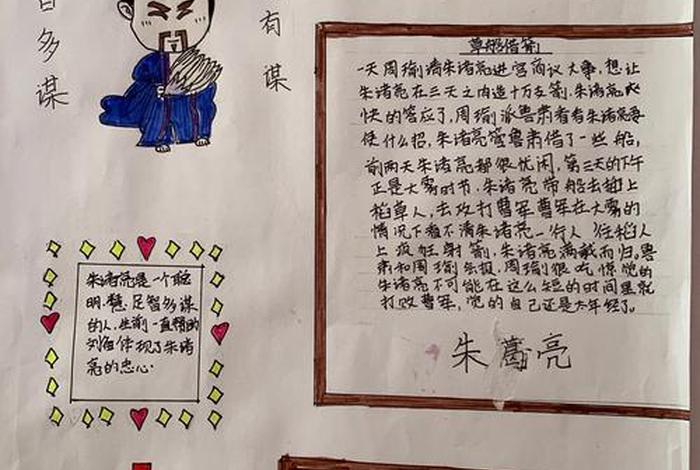 百多谋
有谋
草船借箭
一天周瑜请朱诸亮进宫商议大事，想让
朱诸亮在三天之内造十万支箭，朱诸亮爽
快的答应了，周瑜派鲁肃看看朱诸亮要
使什么招，朱诸亮管鲁肃借了一些船，
前两天朱诸亮都很忧闲，第三天的下午
正是大雾时节，朱诸亮带船去绑上
稻草人，去攻打曹军曹军在大雾的
情况下看不清朱诸亮一行人 往船人
上疯狂射箭，朱诸亮满载而归。鲁
肃和周瑜汇报，周瑜很吃惊觉的
朱诸亮不可能在这么短的时间里就
打败曹军，觉的自己还是太年轻了。
朱葛亮
朱诸亮是一个聪
明，慧，足智多谋
的人，生前一直辅的
刘备体现了朱诸
亮的忠心。